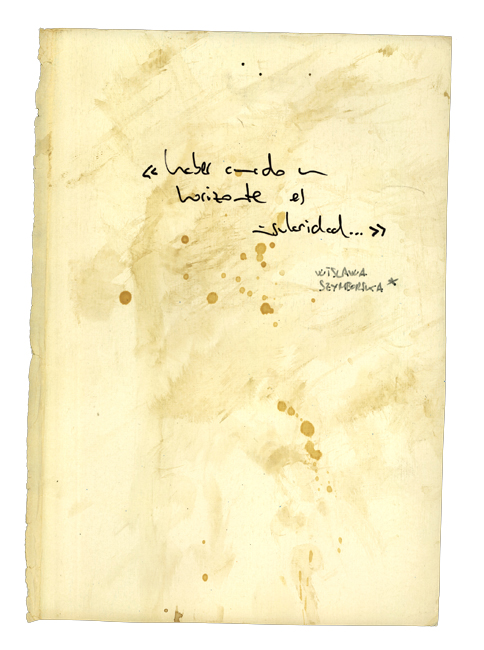 « haber amado un
horizonte es
insularidad... »
WISLAWA
SZYMBORSKA *